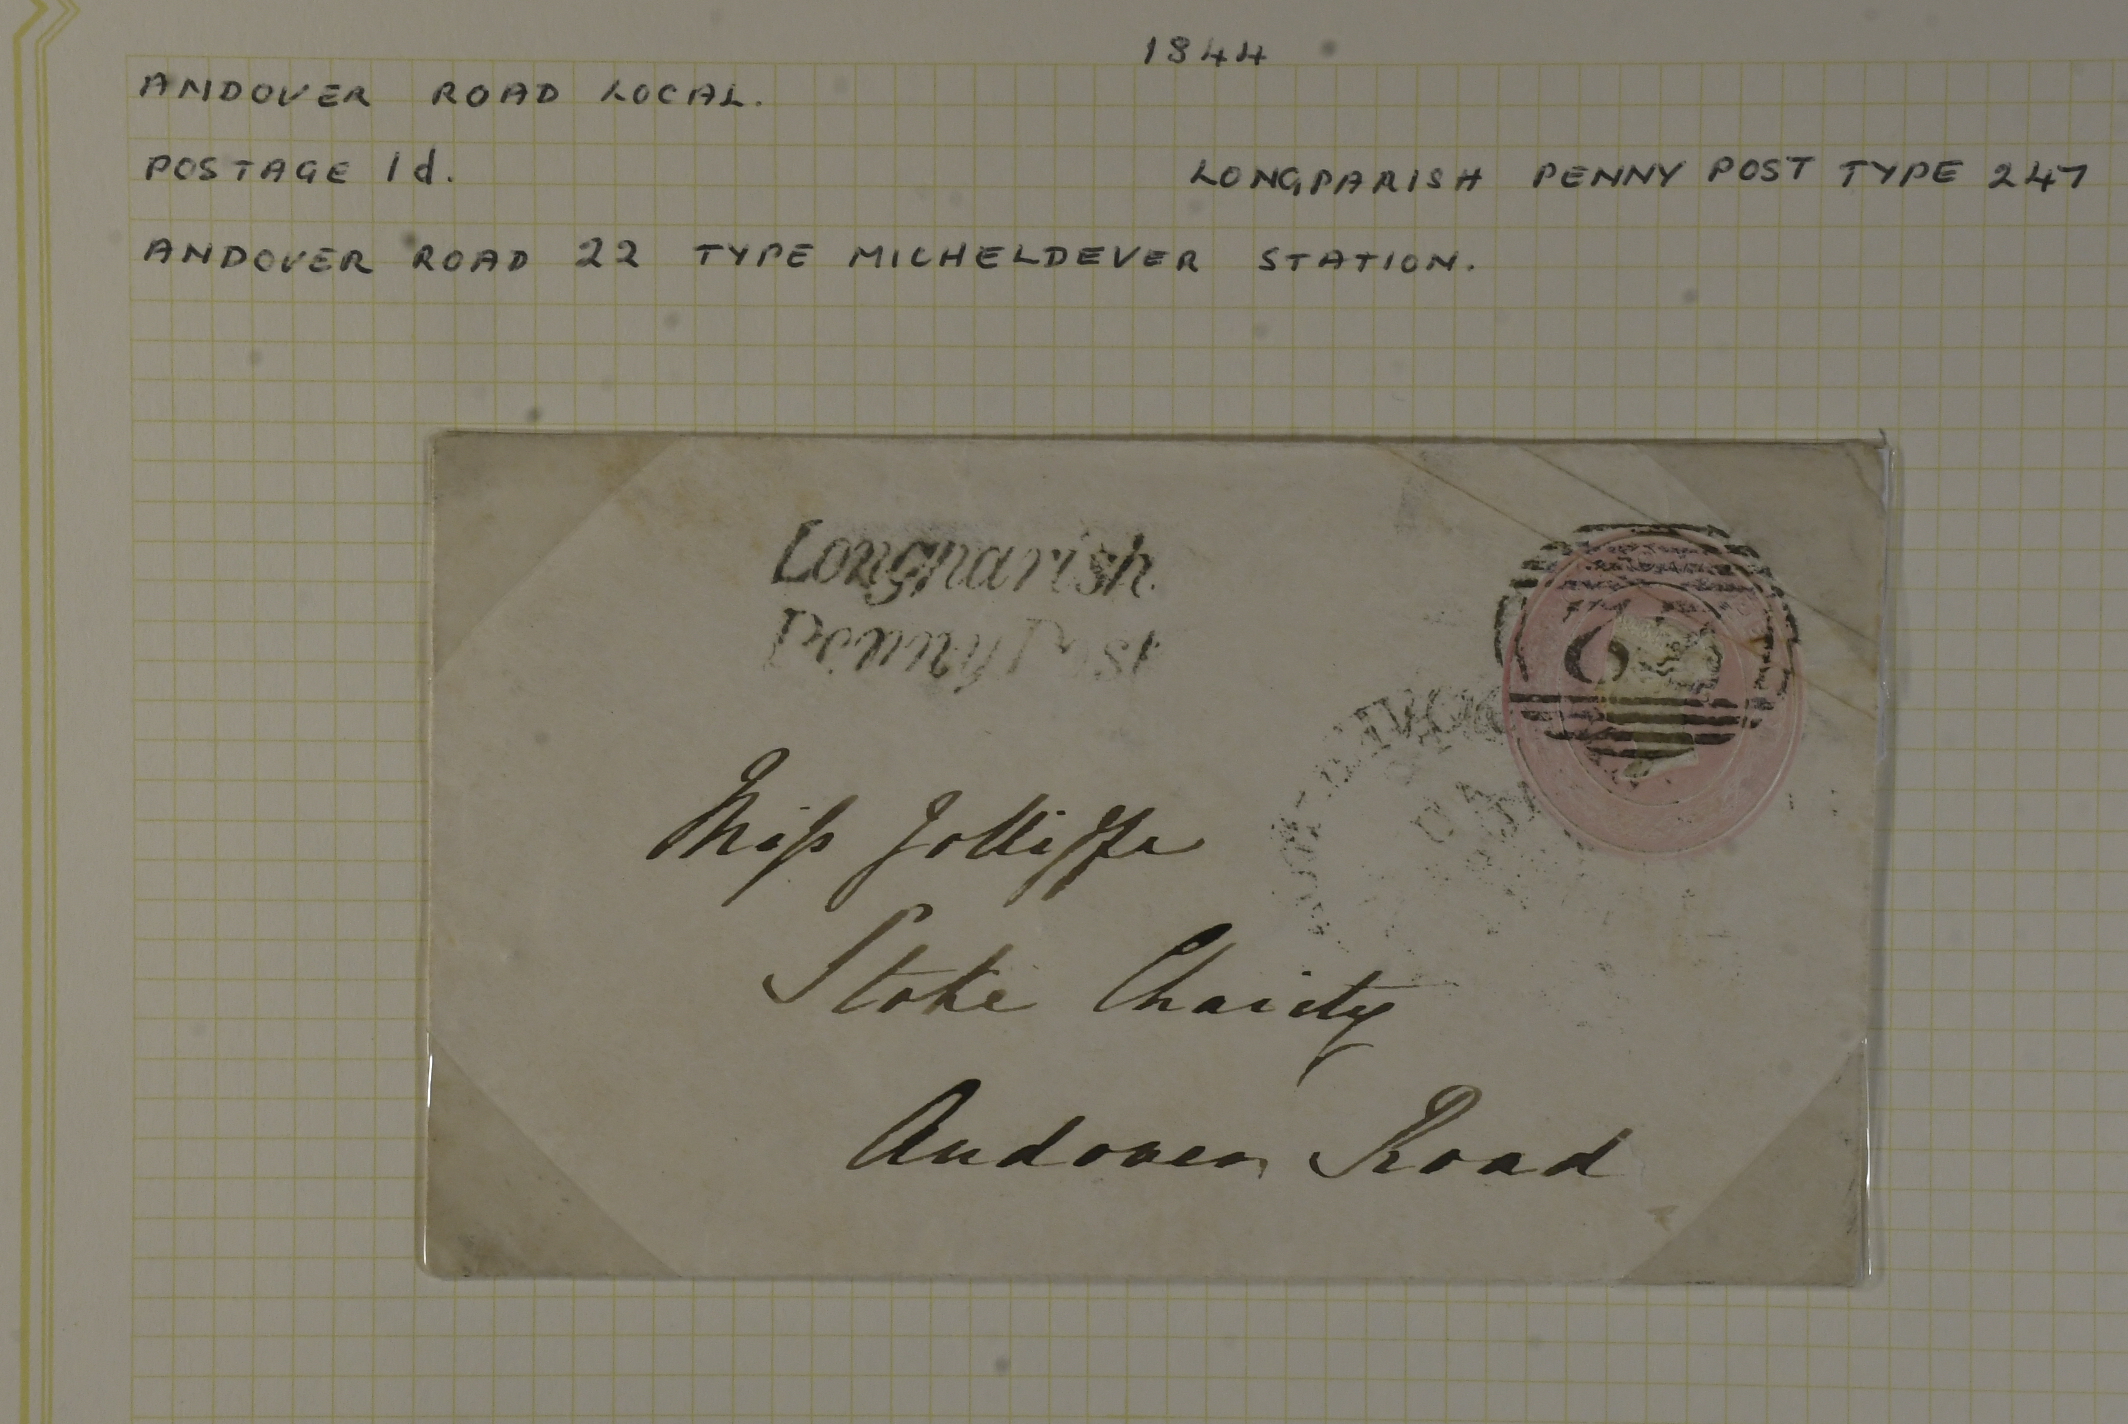 1844
ANDOVER ROAD LOCAL.
POSTAGE 1d.
LONGPARISH PENNY POST TYPE 247
ANDOVER ROAD 22 TYPE MICHELDEVER STATION.
Longparish
Penny Post
Miss Jolliffe
Stoke Charity
Andover Road